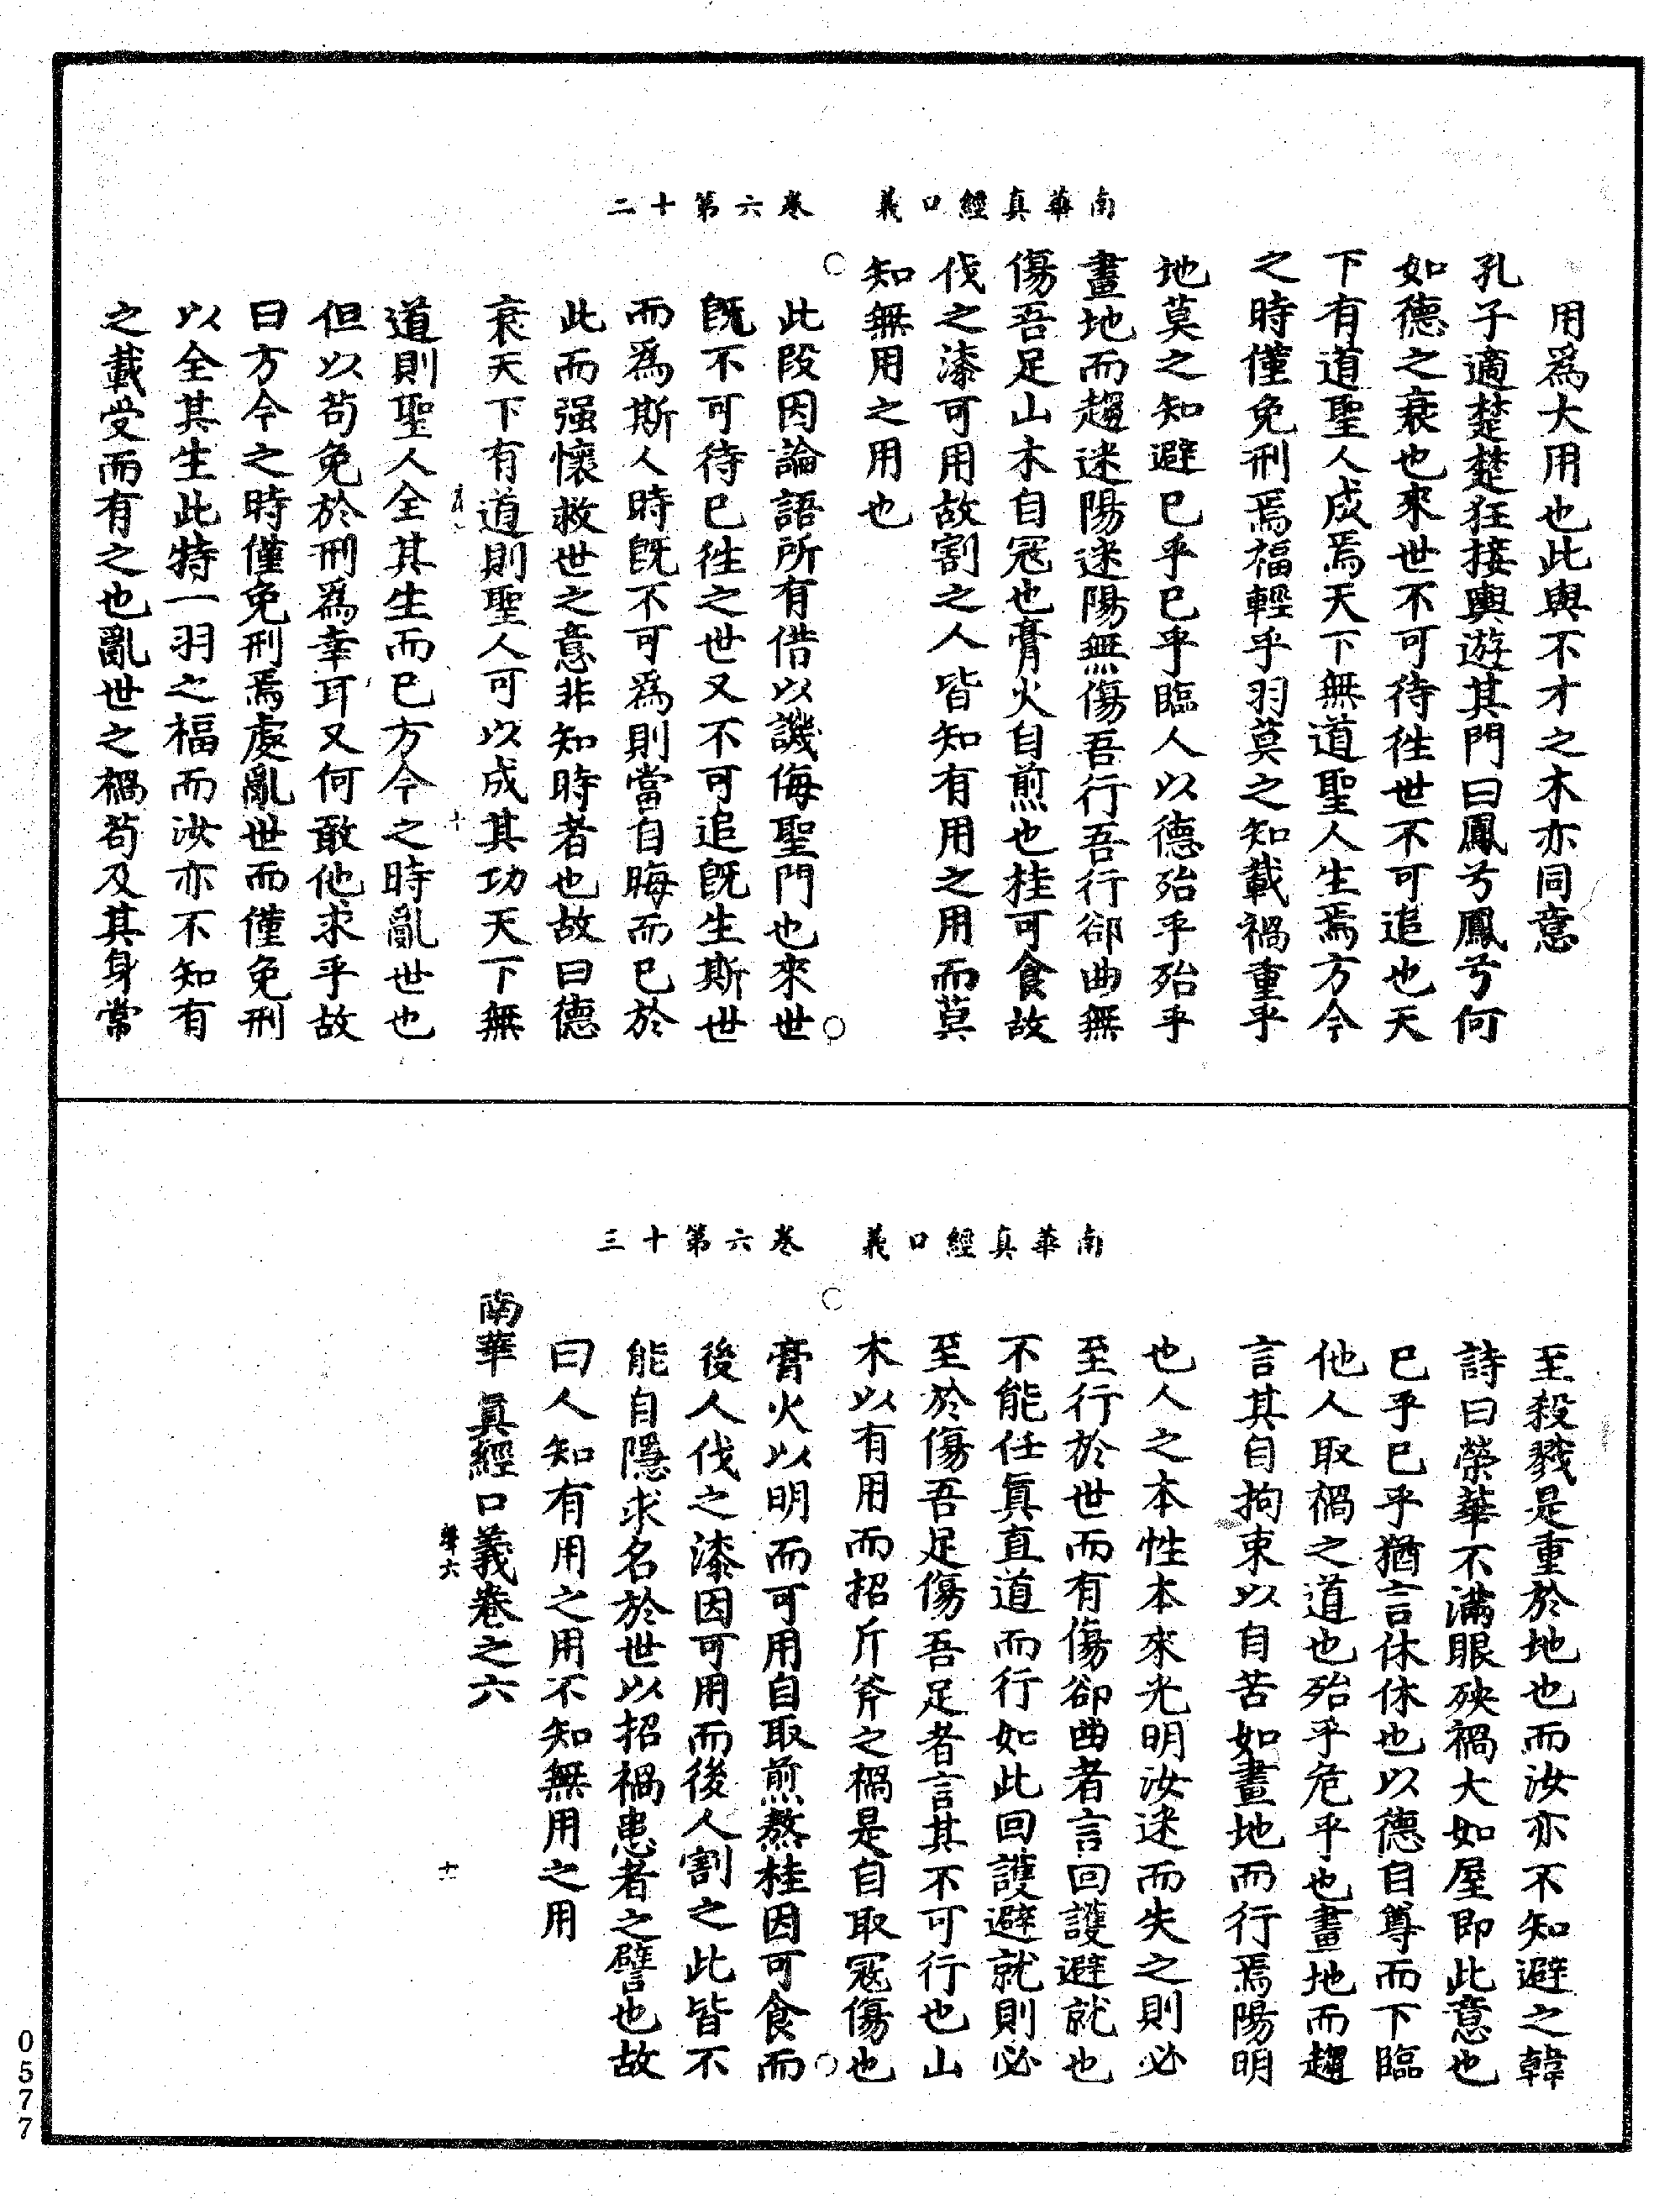 南華真經口義　卷六第十二
用爲大用也此與不才之木亦同意
孔子適楚楚狂接輿遊其門曰鳳兮鳳兮何
如德之衰也來世不可待徃世不可追也天
下有道聖人成焉天下無道聖人生焉方今
之時僅免刑焉福輕乎羽莫之知載禍重乎
地莫之知避巳乎巳乎臨人以德殆乎殆乎
畫地而趨迷陽迷陽無傷吾行吾行郤曲無
傷吾足山木自冦也膏火自煎也桂可食故
伐之漆可用故割之人皆知有用之用而莫
知無用之用也
此段因論語所有借以譏侮聖門也來世
旣不可待巳徃之世又不可追旣生斯世
而爲斯人時旣不可爲則當自晦而巳於
此而强懷救世之意非知時者也故曰德
衰天下有道則聖人可以成其功天下無
道則聖人全其生而巳方今之時亂世也
但以苟免於刑爲幸耳又何敢他求乎故
曰方今之時僅免刑焉處亂世而僅免刑
以全其生此特一羽之福而汝亦不知有
之載受而有之也亂世之禍苟及其身常
南華真經口義　卷六第十三
至殺戮是重於地也而汝亦不知避之韓
詩曰榮華不滿眼殃禍大如屋即此意也
巳乎巳乎猶言休休也以德自尊而下臨
他人取禍之道也殆乎危乎也畫地而趨
言其自拘束以自苦如畫地而行焉陽明
也人之本性本來光明汝迷而失之則必
至行於世而有傷郤曲者言回護避就也
不能任眞直道而行如此回護避就則必
至於傷吾足傷吾足者言其不可行也山
木以有用而招斤斧之禍是自取冦傷也
膏火以明而可用自取煎熬桂因可食而
後人伐之漆因可用而後人割之此皆不
能自隱求名於世以招禍患者之譬也故
曰人知有用之用不知無用之用
南華眞經口義卷之六
十一
0577